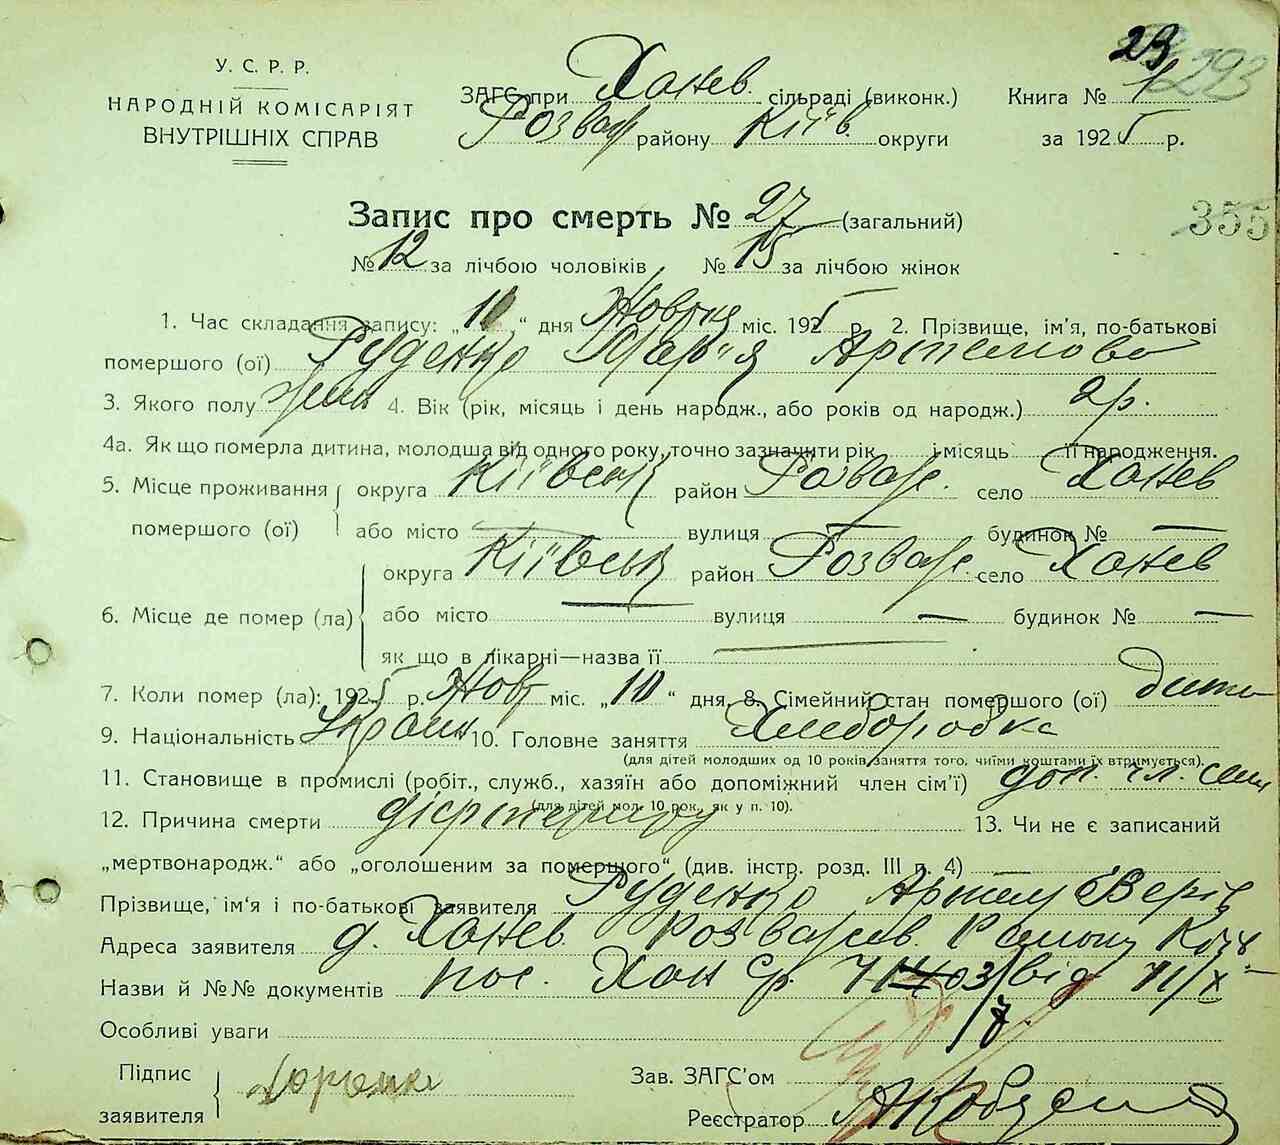 29 293
У. С. Р. Р.
НАРОДНІЙ КОМІСАРІЯТ
ВНУТРІШНІХ СПРАВ
ЗАГС при Ханев. сільраді (виконк.) Книга № 1
Розваж району Київ. округи за 1925 р.
355
Запис про смерть № 27 (загальний)
№ 12 за лічбою чоловіків № 15 за лічбою жінок
1. Час складання запису: „10“ дня Жовтня міс. 1925 р. 2. Прізвище, ім’я, по-батькові
помершого (ої) Руденко Мар'я Артемово
3. Якого полу жін 4. Вік (рік, місяць і день народж., або років од народж.) 2 р.
4а. Як що померла дитина, молодша від одного року, точно зазначити рік і місяць її народження.
5. Місце проживання помершого (ої) округа Київськ район Розваж. село Ханев
або місто — вулиця — будинок № —
6. Місце де помер (ла) округа Київськ район Розваж. село Ханев
або місто — вулиця — будинок № —
як що в лікарні—назва її —
7. Коли помер (ла): 1925 р. Жовт міс. „10“ дня. 8. Сімейний стан помершого (ої) дити
9. Національність Україн 10. Головне заняття Хліборобка
(для дітей молодших од 10 років заняття того, чиїми коштами їх втримується).
11. Становище в промислі (робіт., служб., хазяїн або допоміжний член сім’ї) доп. чл. сем
(для дітей мол. 10 рок., як у п. 10).
12. Причина смерти 13. Чи не є записаний
„мертвонародж.“ або „оголошеним за помершого“ (див. інстр. розд. III п. 4) —
Прізвище, ім‘я і по-батькові заявителя Руденко Артем
Адреса заявителя д. Ханев. Розважев. Району
Назви й №№ документів пос. Хан Ср. від 11/X
Особливі уваги
Підпис заявителя
Зав. ЗАГС’ом
Реєстратор